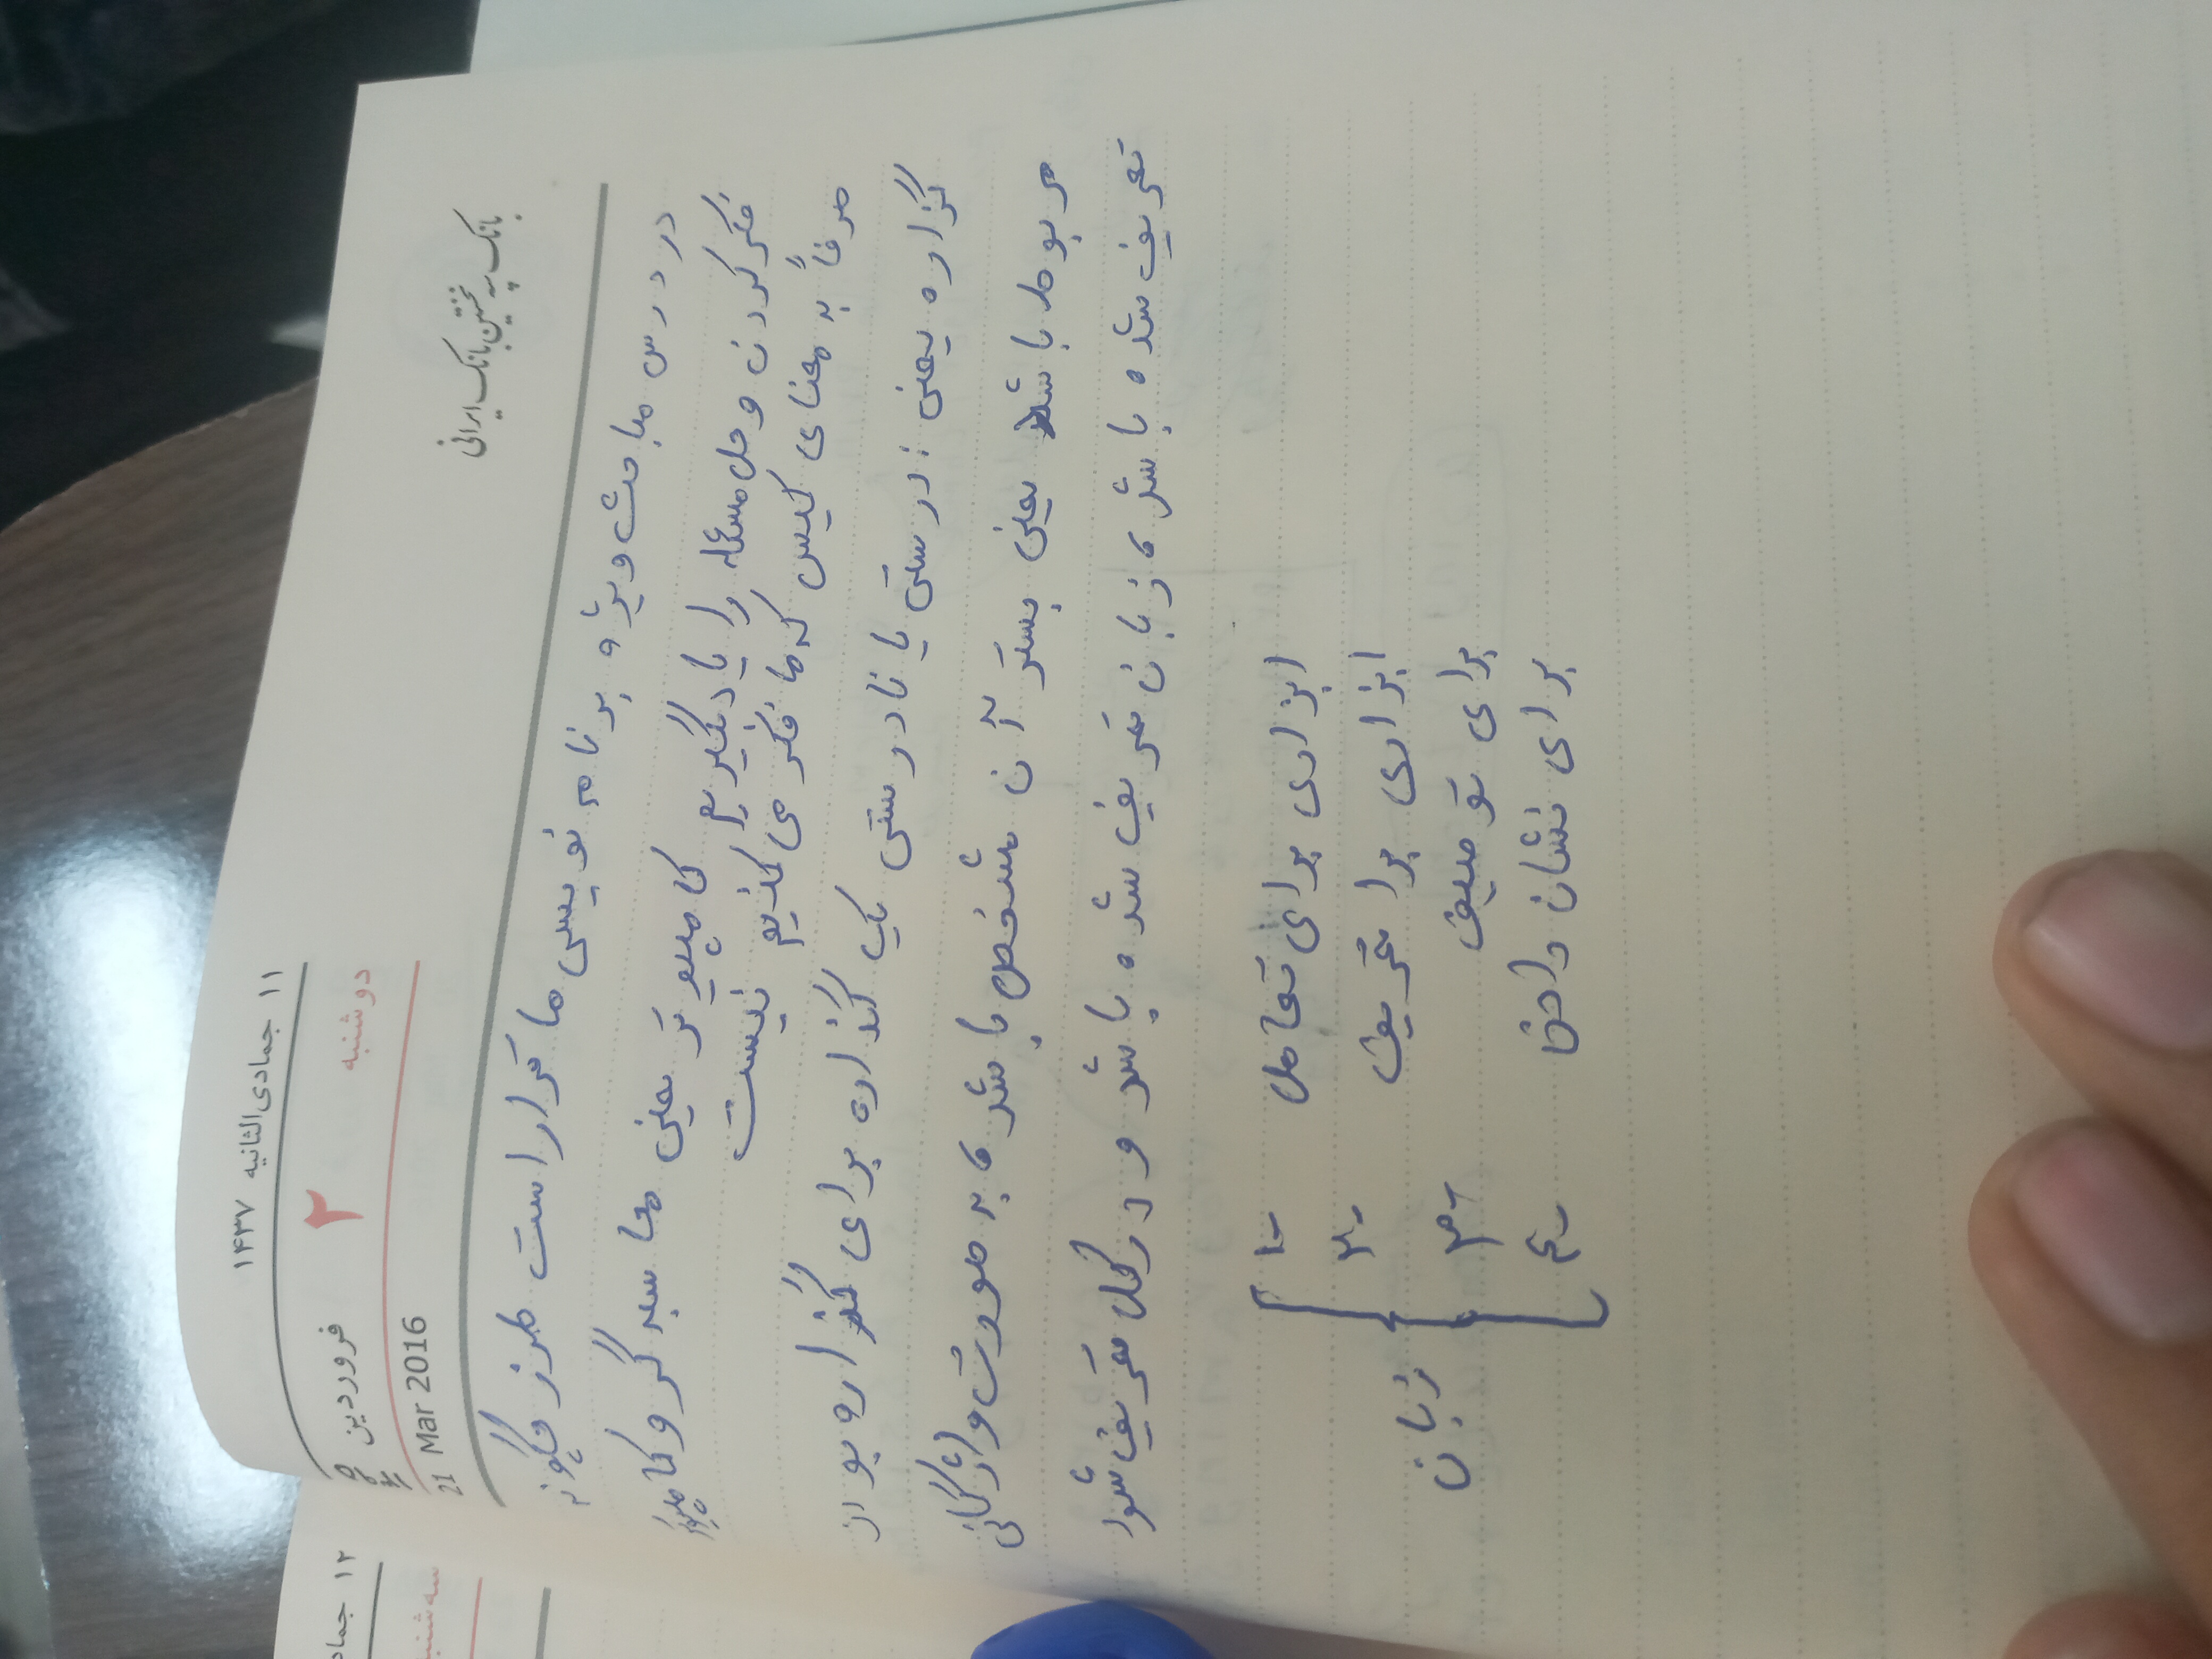 ۱۱ جمادی‌الثانیه ۱۴۳۷
دوشنبه ۲ فروردین ۱۳۹۵
21 Mar 2016
بانک سپه نخستین بانک ایرانی
۱۲ جماد
سه‌شنبه
در درس مباحث ویژه برنامه نویسی ما قرار است طرز چگونه
فکر کردن و حل مسئله را یاد بگیریم کامپیوتر یعنی محاسبه گر و کامپیوتر
صرفاً به معنای کیس که ما فکر می کنیم نیست
گزاره یعنی : درستی یا نادرستی یک گذاره برای گذاره بودن
مربوط باشد یعنی بستر آن مشخص باشد، به صورت واژگانی
تعریف شده باشد، زبان تعریف شده باشد و در کل تعریف شود
ابزاری برای تعامل -۱
ابزاری برا تعریف -۲
برای توصیف -۳
برای نشان دادن -۴
زبان